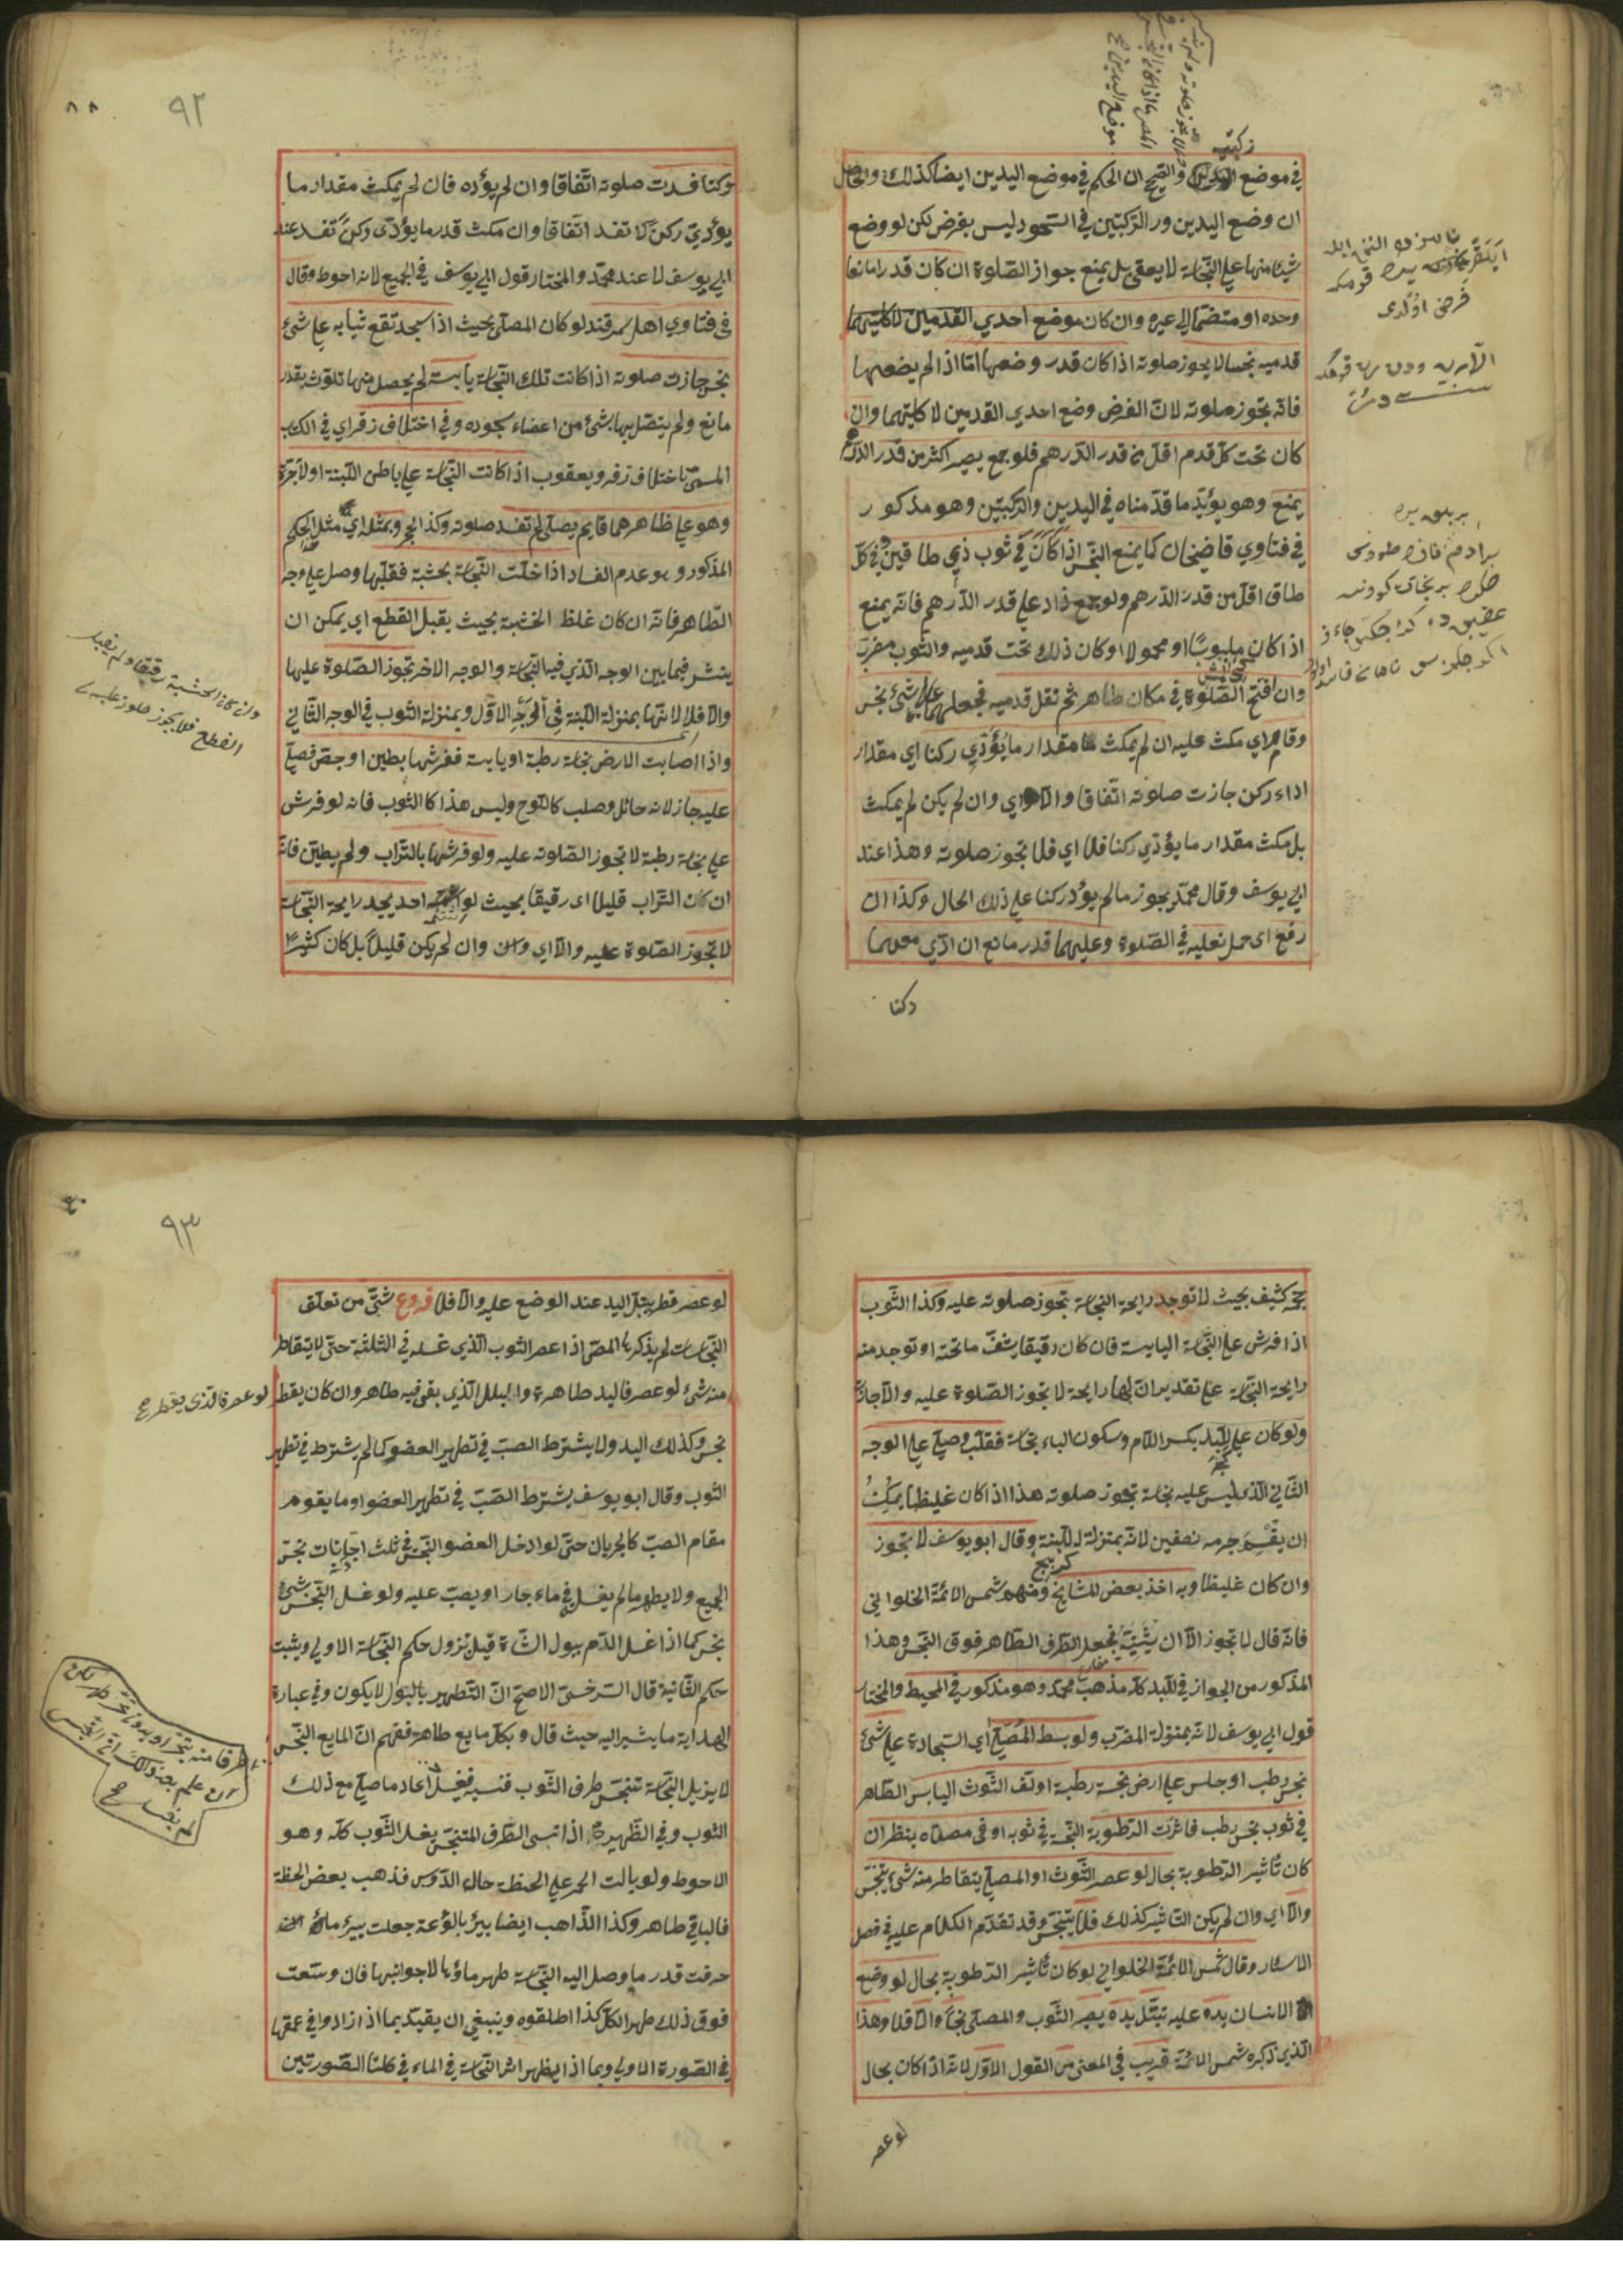 في موضع والصحيح ان الحكم في موضع اليدين ايضا كذلك والحاصل
ان وضع اليدين والركبتين في السجود ليس بفرض لكن لو وضع
شيئا منها علي النجاسة لا يعفى بل يمنع جواز الصلوة ان كان قدرا مانعا
وحده او منضما الي غيره وان كان موضع احدي القدمين لا كلتيهما
قدميه نجسا لا يجوز صلوته اذا كان قدر وضعها اما اذا لم يضعها
فانه تجوز صلوته لان الفرض وضع احدي القدمين لا كلتيهما وان
كان تحت كل قدم اقل من قدر الدرهم فلو جمع يصير اكثر من قدر الدرهم
يمنع وهو يؤيد ما قدمناه في اليدين والركبتين وهو مذكور
في فتاوي قاضيخان كما يمنع النجس اذا كان في ثوب ذي طاقين في كل
طاق اقل من قدر الدرهم ولو جمع زاد علي قدر الدرهم فانه يمنع
اذا كان ملبوسا او محمولا او كان ذلك تحت قدميه والثوب مضرب
وان افتتح الصلوة في مكان طاهر ثم نقل قدميه فجعلهما علي شئ نجس
وقام اي مكث عليه ان لم يمكث مقدار ما يؤدي ركنا اي مقدار
اداء ركن جازت صلوته اتفاقا والا اي وان لم يكن لم يمكث
بل مكث مقدار ما يؤدي ركنا فلا اي فلا تجوز صلوته وهذا عند
ابي يوسف وقال محمد يجوز ما لم يؤد ركنا علي ذلك الحال وكذا ان
رفع اي حمل نعليه في الصلوة وعليهما قدر مانع ان ادي معهما
ركنا
ركبتيه
فرض اولدى
٩٢
٨٨
ركنا فسدت صلوته اتفاقا وان لم يؤده فان لم يمكث مقدار ما
يؤدي ركن لا تفسد اتفاقا وان مكث قدر ما يؤدى ركن تفسد عند
ابي يوسف لا عند محمد والمختار قول ابي يوسف في الجميع لانه احوط وقال
في فتاوي اهل سمرقند لو كان المصلي بحيث اذا سجد تقع ثيابه علي شئ
نجس جازت صلوته اذا كانت تلك النجاسة يابسة لم يحصل منها تلوث بقدر
مانع ولم يتصل بها بشئ من اعضاء سجوده وفي اختلاف زفر اي في الكتاب
المسمى باختلاف زفر ويعقوب اذا كانت النجاسة علي باطن اللبنة او الآجرة
وهو علي ظاهرهما قايم يصلي لم تفسد صلوته وكذا الحجر وبمثله اي مثل الحكم
المذكور وهو عدم الفساد اذا حلت النجاسة بخشبة فقلبها وصلى علي وجه
الطاهر فانه ان كان غلظ الخشبة بحيث يقبل القطع اي يمكن ان
ينشر فيما بين الوجه الذي فيه النجاسة والوجه الاخر تجوز الصلوة عليها
والا فلا لانها بمنزلة اللبنة في الوجه الاول وبمنزلة الثوب في الوجه الثاني
واذا اصابت الارض نجاسة رطبة او يابسة ففرشها بطين او جص فصلي
عليه جاز لانه حائل وصلب كاللوح وليس هذا كالثوب فانه لو فرش
علي نجاسة رطبة لا تجوز الصلوته عليه ولو فرشها بالتراب ولم يطين فانه
ان كان التراب قليلا اى رقيقا بحيث لو احد يجد رايحة النجاسة
لا تجوز الصلوة عليه والا اي وان لم يكن قليلا بل كان كثيرا
وان كان الخشبة رقيقا ولم يقبل
القطع فلا يجوز صلوته عليه
كثيف بحيث لا توجد رايحة النجاسة تجوز صلوته عليه وكذا الثوب
اذا فرش علي النجاسة اليابسة فان كان رقيقا يشف ما تحته او توجد منه
رايحة النجاسة علي تقدير ان لها رايحة لا تجوز الصلوة عليه والا جازت
ولو كان علي اللبد بكسر اللام وسكون الباء نجاسة فقلب وصلي علي الوجه
الثاني الذي ليس عليه نجاسة تجوز صلوته هذا اذا كان غليظا يمكن
ان يقسم جرمه نصفين لانه بمنزلة اللبنة وقال ابو يوسف لا تجوز
وان كان غليظا وبه اخذ بعض المشايخ ومنهم شمس الائمة الحلواني
فانه قال لا تجوز الا ان يثنيه فيجعل الطرف الطاهر فوق النجس وهذا
المذكور من الجواز في اللبد كله مذهب محمد وهو مذكور في المحيط والمختار
قول ابي يوسف لانه بمنزلة المضرب ولو بسط المصلي اي السجادة علي شئ
نجس رطب او جلس علي ارض نجسة رطبة او لف الثوب اليابس الطاهر
في ثوب نجس رطب فاثرت الرطوبة النجسة في ثوبه او في مصلاه ينظر ان
كان تأثير الرطوبة بحال لو عصر الثوب او المصلي يتقاطر منه شئ يتنجس
والا اي وان لم يكن التاثير كذلك فلا يتنجس وقد تقدم الكلام عليه في فصل
الاسئار وقال شمس الائمة الحلواني لو كان تأثير الرطوبة بحال لو وضع
الانسان يده عليه تبتل يده يصير الثوب والمصلى نجسا والا فلا وهذا
الذي ذكره شمس الائمة قريب في المعنى من القول الاول لانه اذا كان بحال
لو عصر
٩٣
لو عصر قطر يبتل اليد عند الوضع عليه والا فلا فروع شتى من تعلق
النجاسات لم يذكرها المص اذا عصر الثوب الذي غسله في الثلثة حتى لا يتقاطر
منه شئ لو عصر فاليد طاهرة والبلل الذي بقي فيه طاهر وان كان يقطر
لو عصر فالذى يقطر
نجس وكذلك اليد ولا يشترط الصب في تطهير العضو كما لم يشترط في تطهير
الثوب وقال ابو يوسف يشترط الصب في تطهير العضو او ما يقوم
مقام الصب كالجريان حتى لو ادخل العضو النجس في ثلث اجانات نجس
الجميع ولا يطهر ما لم يغسل في ماء جار او يصب عليه ولو غسل النجس بشئ
نجس كما اذا غسل الدم ببول الشاة قيل تزول حكم النجاسة الاولي ويثبت
حكم الثانية قال السرخسي الاصح ان التطهير بالبول لا يكون وفي عبارة
الهداية ما يشير اليه حيث قال وبكل مايع طاهر ففهم ان المايع النجس
لا يزيل النجاسة تنجس طرف الثوب فنسيه فغسل اعاد ما صلي مع ذلك
الثوب وفي الظهيرية اذا نسى الطرف المتنجس يغسل الثوب كله وهو
الاحوط ولو بالت الحمر علي الحنطة حالة الدوس فذهب بعض الحنطة
فالباقي طاهر وكذا الذاهب ايضا بئر بالوعة جعلت بير ماء
حفرت قدر ما وصل اليه النجاسة طهر ماؤها لا جوانبها فان وسعت
فوق ذلك طهر الكل كذا اطلقوه وينبغي ان يقيد بما اذا زادوا في عمقها
في الصورة الاولي وبما اذا لم يظهر اثر النجاسة في الماء في كلتا الصورتين